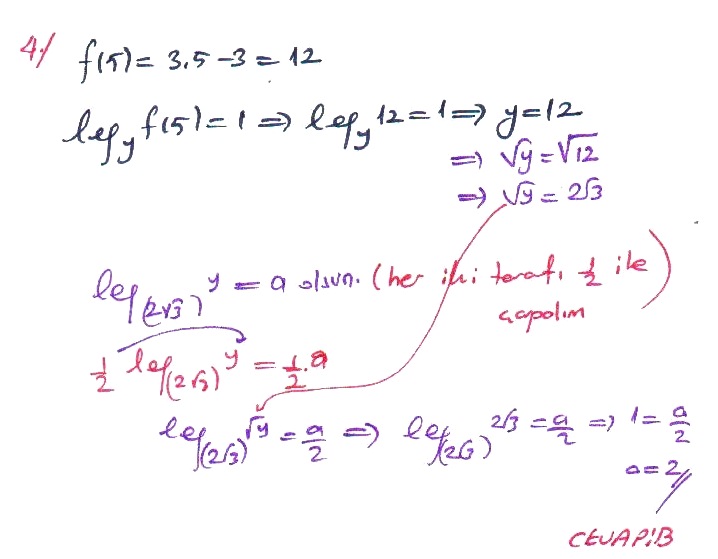 4-/ f(5) = 3.5 - 3 = 12
log_y f(5) = 1 ⇒ log_y 12 = 1 ⇒ y = 12
⇒ √y = √12
⇒ √y = 2√3
log_(2√3) y = a olsun. (her iki tarafı 1/2 ile
çarpalım)
1/2 log_(2√3) y = 1/2 . a
log_(2√3) √y = a/2 ⇒ log_(2√3) 2√3 = a/2 ⇒ 1 = a/2
a = 2
CEVAP: B